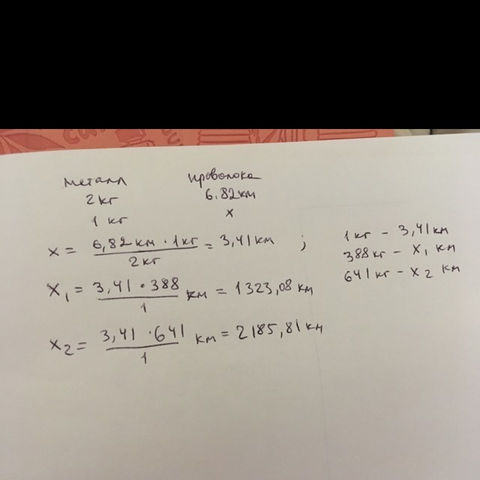 металл проволока
2 кг 6.82 км
1 кг x
x = 6,82 км · 1 кг / 2 кг = 3,41 км ; 1 кг – 3,41 км
388 кг – x₁ км
641 кг – x₂ км
x₁ = 3,41 · 388 / 1 км = 1323,08 км
x₂ = 3,41 · 641 / 1 км = 2185,81 км